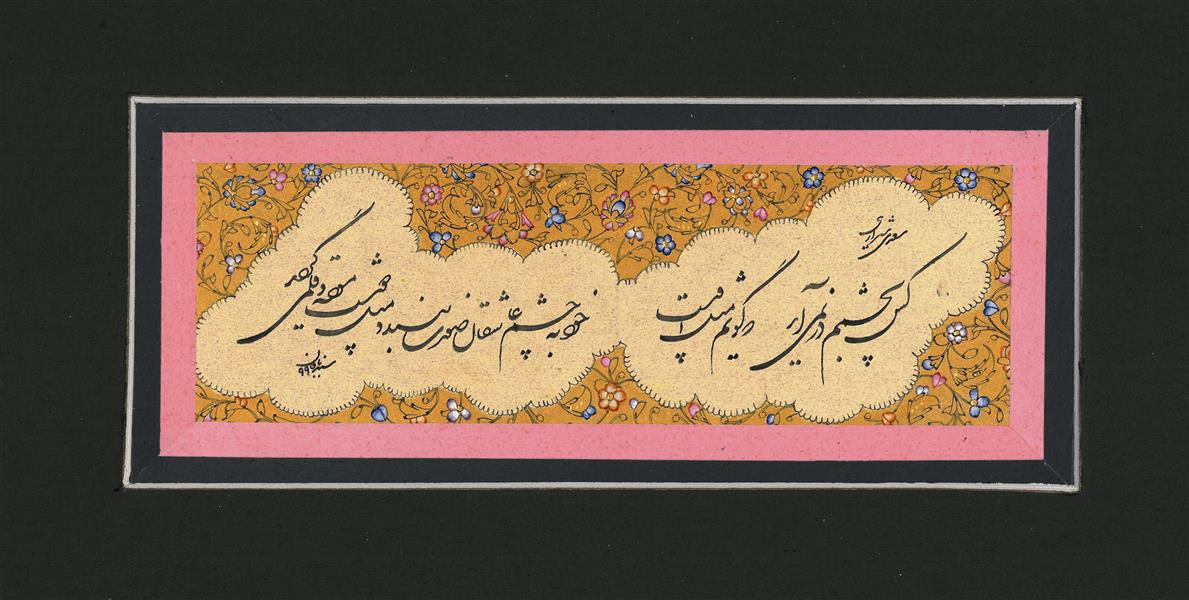 سعدی شیرازی
کس بچشمم در نمی آید که گویم مثل اوست
خود به چشم عاشقان صورت نبندد مثل دوست